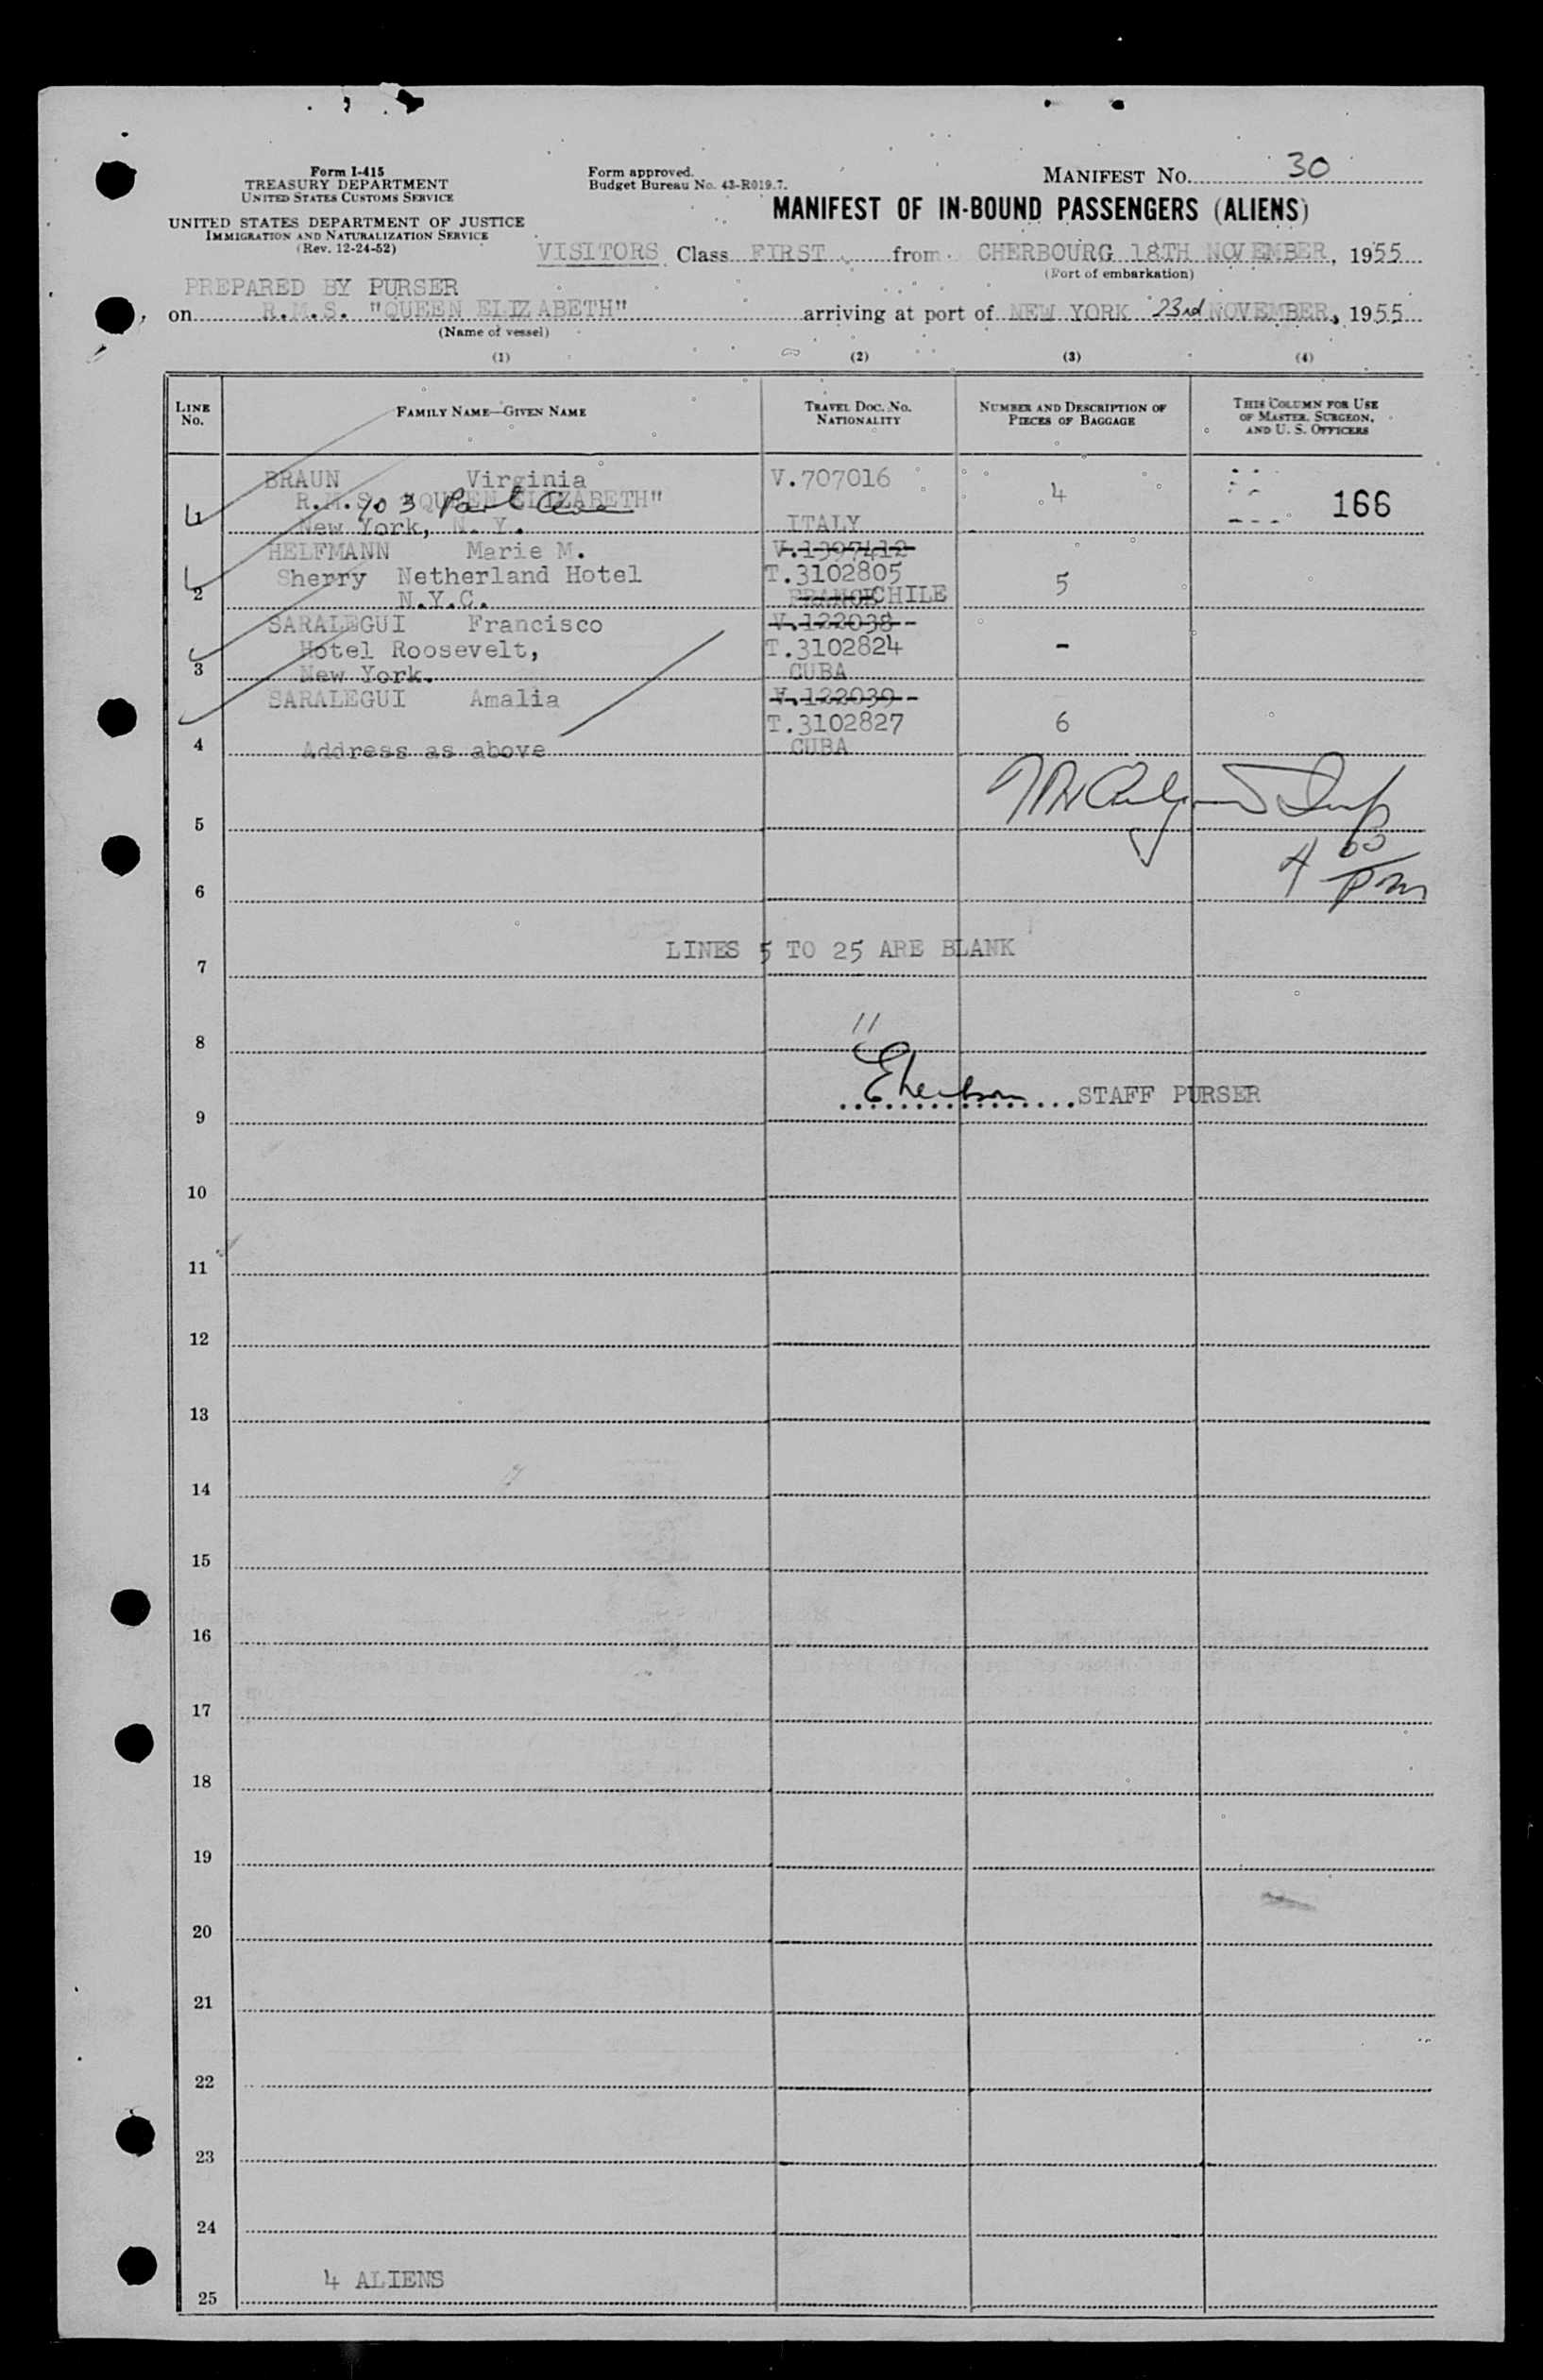 Form I-415
TREASURY DEPARTMENT
UNITED STATES CUSTOMS SERVICE
UNITED STATES DEPARTMENT OF JUSTICE
IMMIGRATION AND NATURALIZATION SERVICE
(Rev. 12-24-52)
Form approved.
Budget Bureau No. 43-R019.7.
MANIFEST NO. 30
MANIFEST OF IN-BOUND PASSENGERS (ALIENS)
VISITORS Class FIRST from CHERBOURG 18TH NOVEMBER, 1955
(Port of embarkation)
PREPARED BY PURSER
on R.M.S. "QUEEN ELIZABETH" arriving at port of NEW YORK 23rd NOVEMBER, 1955
(Name of vessel)
(1) (2) (3) (4)
LINE No. FAMILY NAME—GIVEN NAME TRAVEL DOC. NO. NATIONALITY NUMBER AND DESCRIPTION OF PIECES OF BAGGAGE THIS COLUMN FOR USE OF MASTER, SURGEON, AND U. S. OFFICERS
BRAUN Virginia V.707016
R.M.S. "QUEEN ELIZABETH" 903 Park Ave 4 166
1 New York, N. Y. ITALY
HELFMANN Marie M. V.1397412
Sherry Netherland Hotel T.3102805 5
2 N.Y.C. FRANCE CHILE
SARALEGUI Francisco V.122038
Hotel Roosevelt, T.3102824 -
3 New York. CUBA
SARALEGUI Amalia V.122039
T.3102827 6
4 Address as above CUBA
5
4 00 pm
6
LINES 5 TO 25 ARE BLANK
7
8
STAFF PURSER
9
10
11
12
13
14
15
16
17
18
19
20
21
22
23
24
4 ALIENS
25